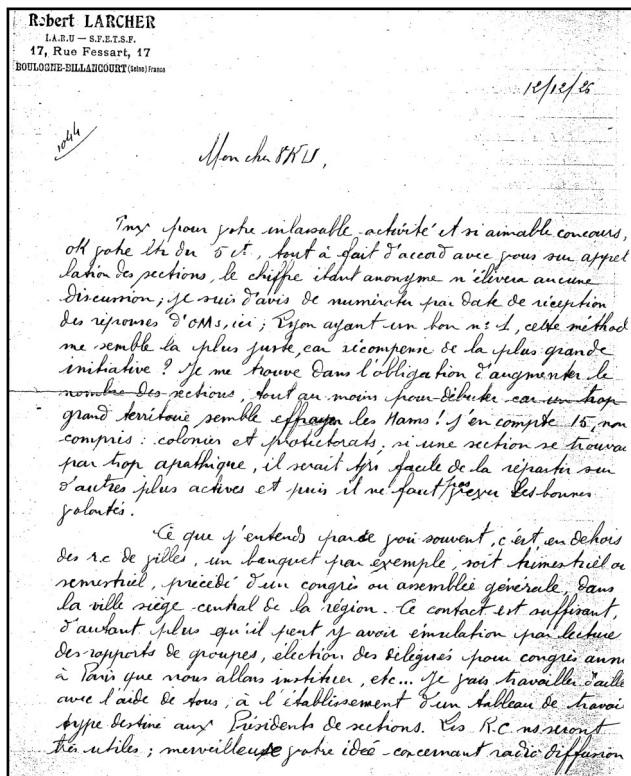 Robert LARCHER
I.A.R.U — S.F.E.T.S.F.
17, Rue Fessart, 17
BOULOGNE-BILLANCOURT (Seine) France
12/12/25
1044
Mon cher 8KU,
Tnx pour votre inlassable activité et si aimable concours,
ok votre ltr du 5 ct, tout à fait d'accord avec vous sur appel
lation des sections, le chiffre étant anonyme n'élèvera aucune
discussion; je suis d'avis de numéroter par date de réception
des réponses d'OMs, ici; Lyon ayant un bon n: 1, cette méthod
me semble la plus juste, car récompense de la plus grande
initiative? Je me trouve dans l'obligation d'augmenter le
nombre des sections, tout au moins pour débuter car un trop
grand territoire semble effrayer les Hams! J'en compte 15, non
compris: colonies et protectorats, si une section se trouva
par trop apathique, il serait très facile de la répartir sur
d'autres plus actives et puis il ne faut pas les bonnes
volontés.
Ce que j'entends par se voir souvent, c'est en dehors
des r.c de villes, un banquet par exemple, soit trimestriel ou
semestriel, précédé d'un congrès ou assemblée générale, dans
la ville siège central de la région. Ce contact est suffisant,
d'autant plus qu'il peut y avoir émulation par lecture
des rapports de groupes, élection des délégués pour congrès annu
à Paris que nous allons instituer, etc... Je vais travailler d'aille
avec l'aide de tous, à l'établissement d'un tableau de travai
type destiné aux Présidents de sections. Les R.C. ns seront
très utiles; merveilleuse votre idée concernant radio diffusion